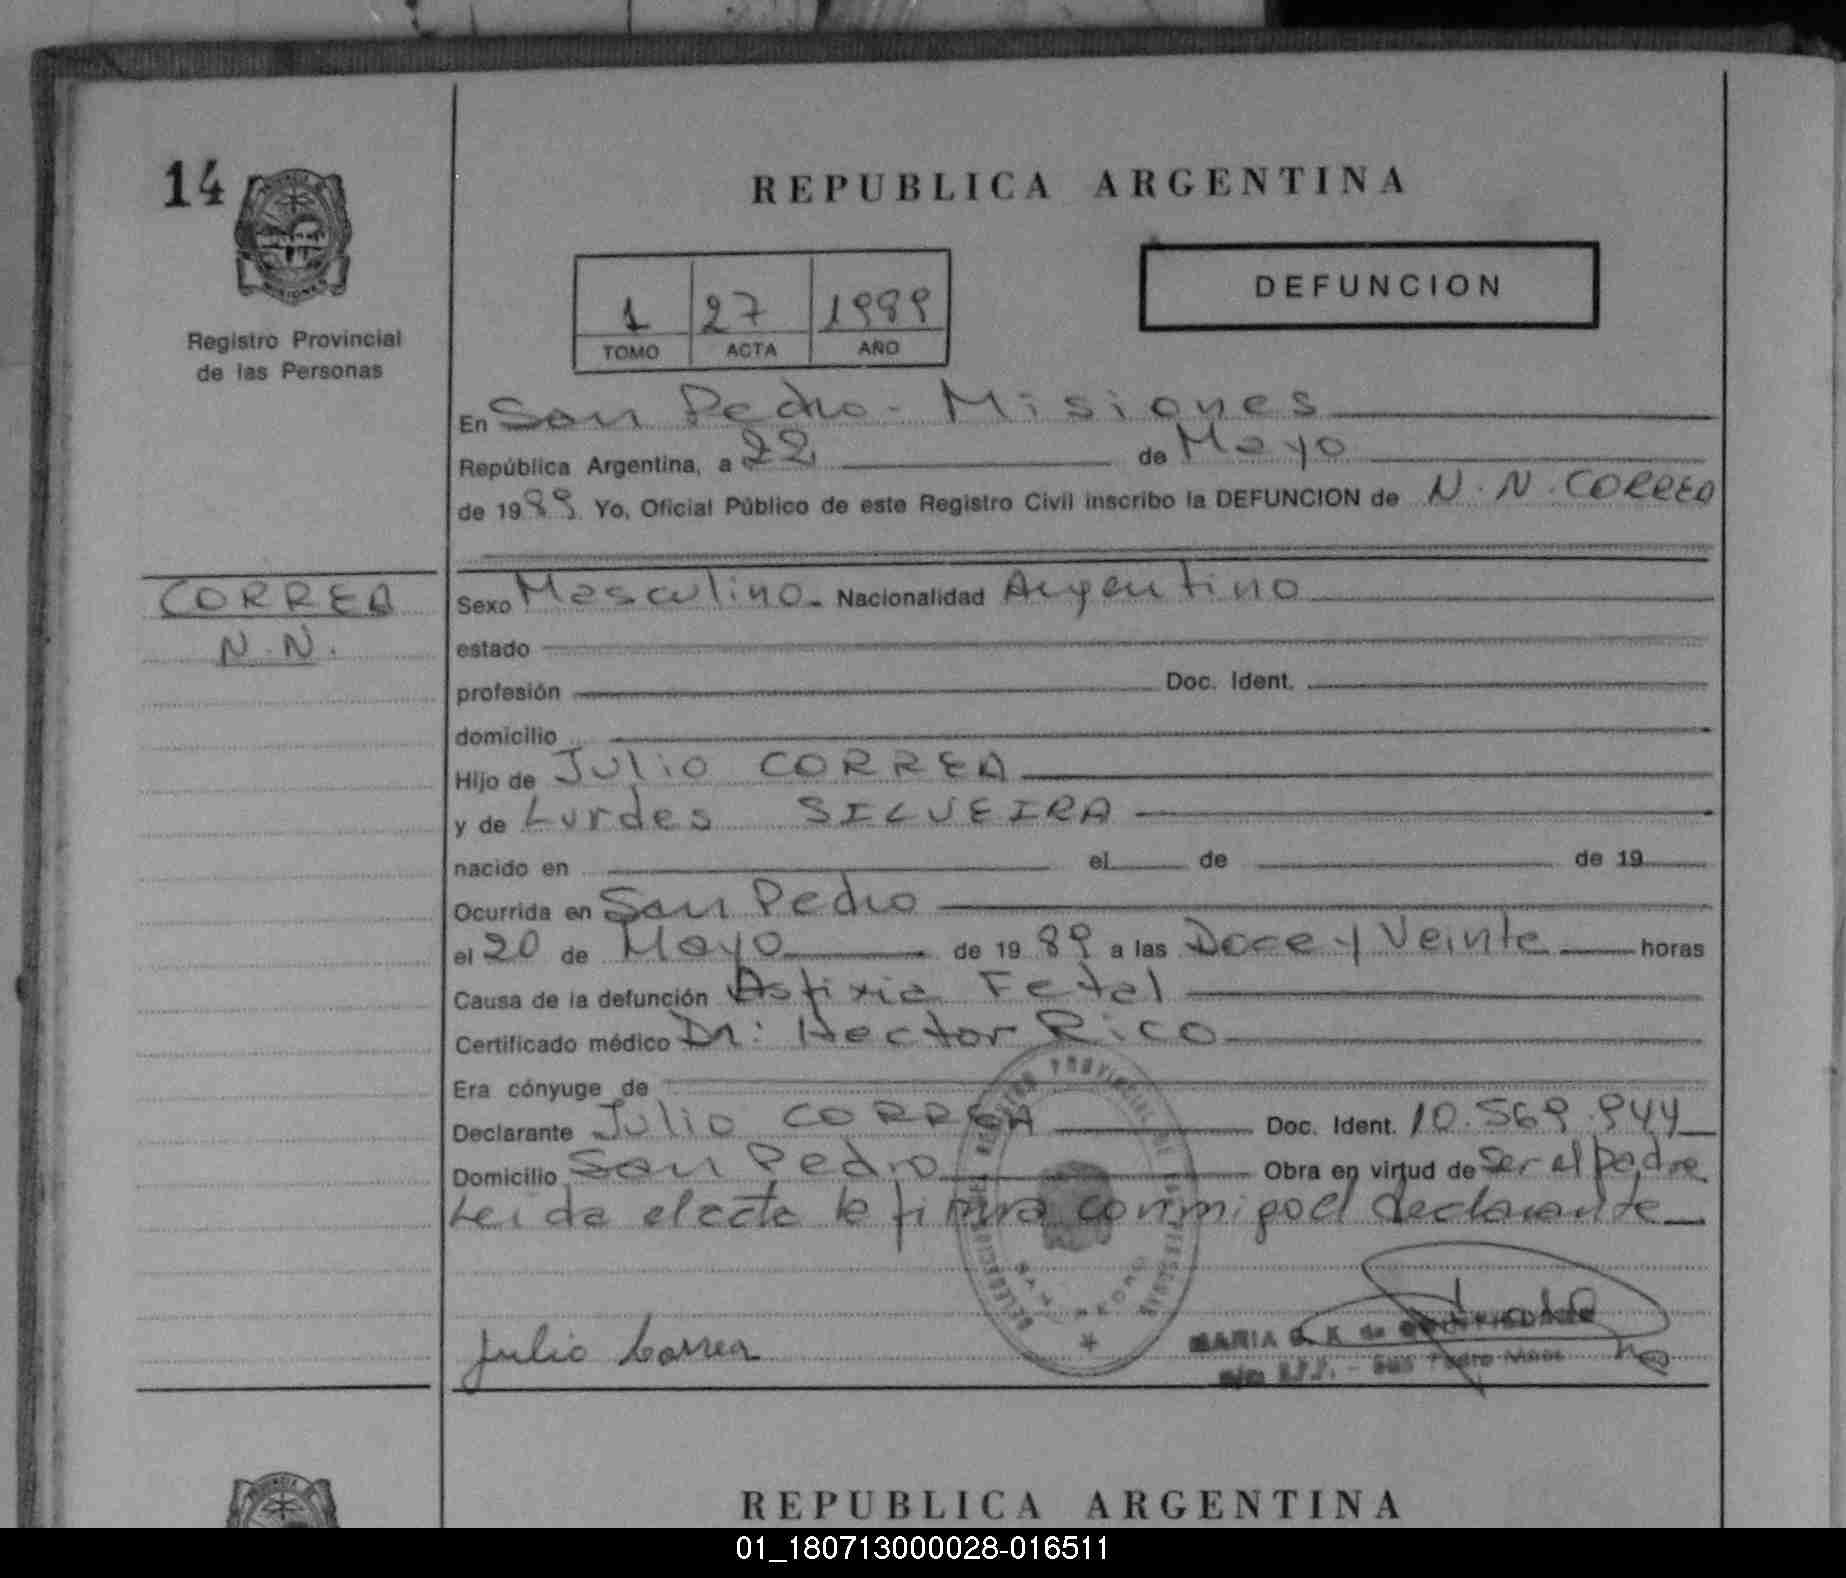 14
PROVINCIA
MISIONES
Registro Provincial
de las Personas
REPUBLICA ARGENTINA
1 27 1989
TOMO ACTA AÑO
DEFUNCION
En San Pedro - Misiones
República Argentina, a 22 de Mayo
de 1989 Yo, Oficial Público de este Registro Civil inscribo la DEFUNCION de N.N. CORREA
CORREA
N.N.
Sexo Masculino. Nacionalidad Argentino
estado
profesión Doc. Ident.
domicilio
Hijo de Julio CORREA
y de Lurdes SILVEIRA
nacido en el de de 19
Ocurrida en San Pedro
el 20 de Mayo de 1989 a las Doce y Veinte horas
Causa de la defunción Asfixia Fetal
Certificado médico Dr: Hector Rico
Era cónyuge de
Declarante Julio CORREA Doc. Ident. 10.569.944
Domicilio San Pedro Obra en virtud de ser el padre
Leida el acta la firma conmigo el declarante
REGISTRO PROVINCIAL DE LAS PERSONAS
DELEGACION
SAN PEDRO
Julio Correa
MARIA G. K. de
San Pedro Mnes
REPUBLICA ARGENTINA
01_180713000028-016511